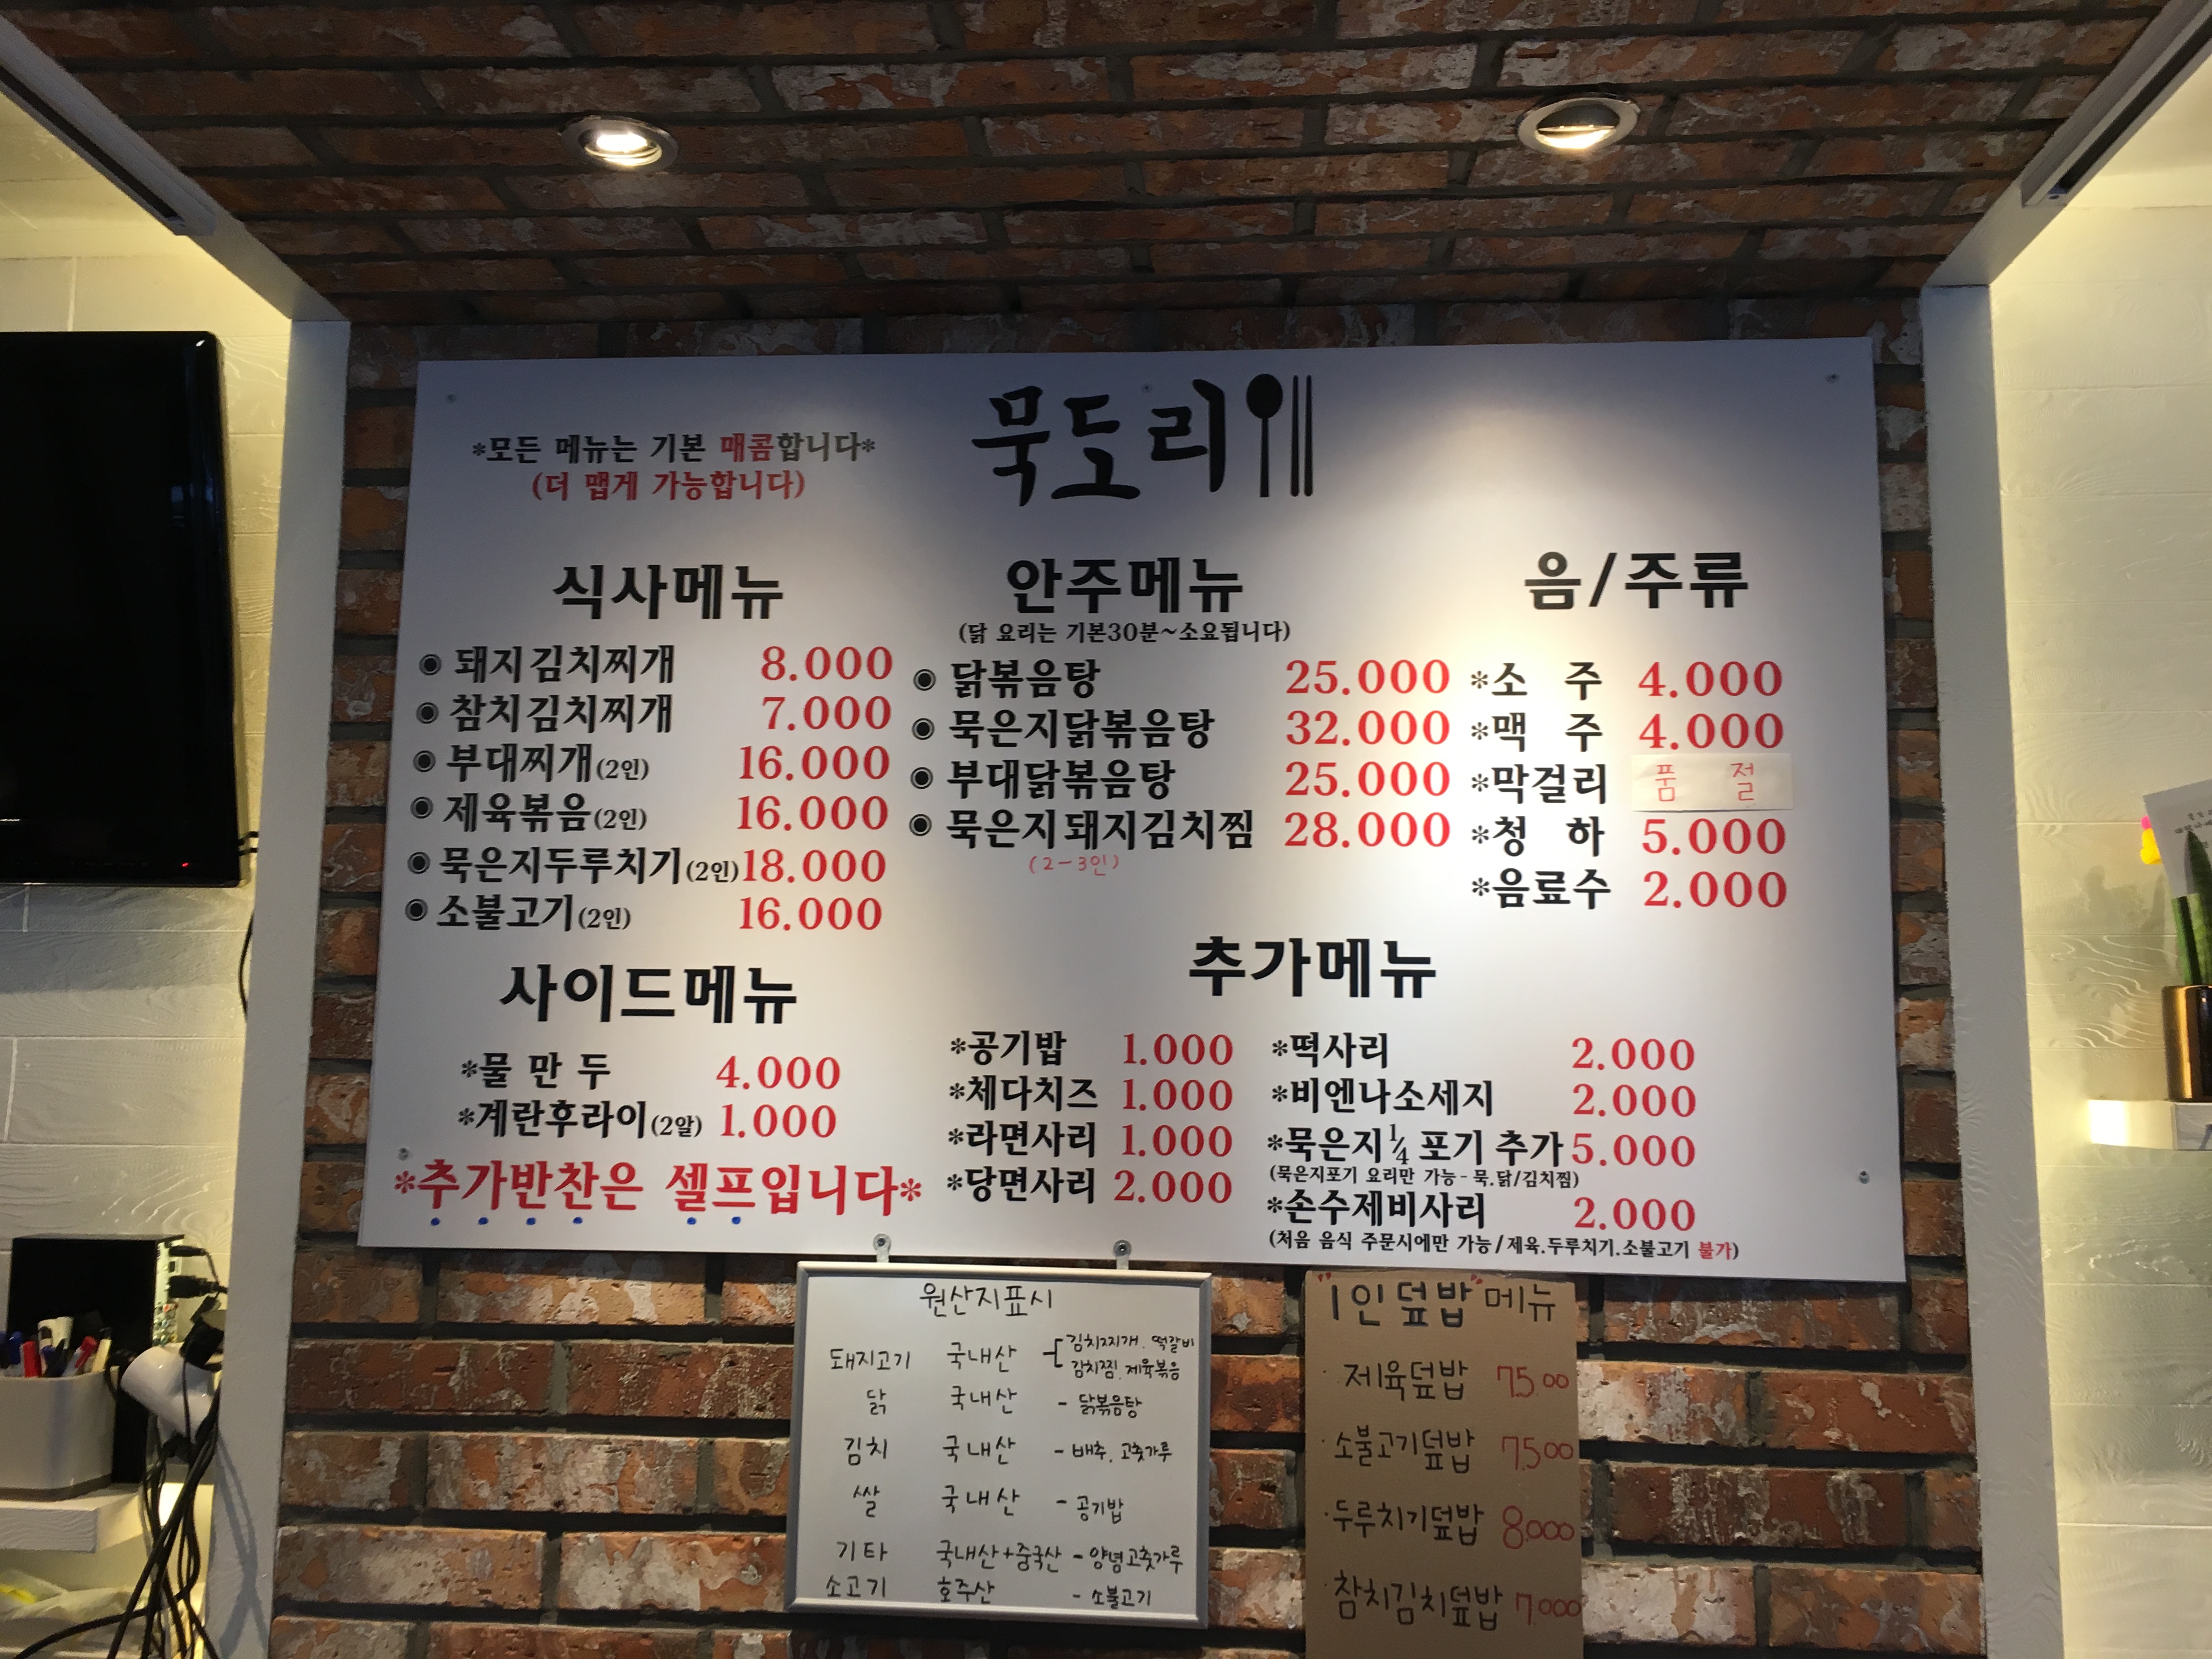 묵도리
*모든 메뉴는 기본 매콤합니다*
(더 맵게 가능합니다)
식사메뉴
◉ 돼지김치찌개 8.000
◉ 참치김치찌개 7.000
◉ 부대찌개(2인) 16.000
◉ 제육볶음(2인) 16.000
◉ 묵은지두루치기(2인) 18.000
◉ 소불고기(2인) 16.000
안주메뉴
(닭 요리는 기본30분~소요됩니다)
◉ 닭볶음탕 25.000
◉ 묵은지닭볶음탕 32.000
◉ 부대닭볶음탕 25.000
◉ 묵은지돼지김치찜 28.000
(2-3인)
음/주류
*소 주 4.000
*맥 주 4.000
*막걸리 품 절
*청 하 5.000
*음료수 2.000
사이드메뉴
*물 만 두 4.000
*계란후라이(2알) 1.000
*추가반찬은 셀프입니다*
추가메뉴
*공기밥 1.000
*체다치즈 1.000
*라면사리 1.000
*당면사리 2.000
*떡사리 2.000
*비엔나소세지 2.000
*묵은지 1/4 포기 추가 5.000
(묵은지포기 요리만 가능-묵.닭/김치찜)
*손수제비사리 2.000
(처음 음식 주문시에만 가능/제육.두루치기.소불고기 불가)
원산지표시
돼지고기 국내산 -[김치찌개. 떡갈비
김치찜. 제육볶음
닭 국내산 - 닭볶음탕
김치 국내산 - 배추. 고춧가루
쌀 국내산 - 공기밥
기타 국내산+중국산 - 양념고춧가루
소고기 호주산 - 소불고기
"1인덮밥" 메뉴
· 제육덮밥 7.500
· 소불고기덮밥 7.500
· 두루치기덮밥 8.000
· 참치김치덮밥 7.000